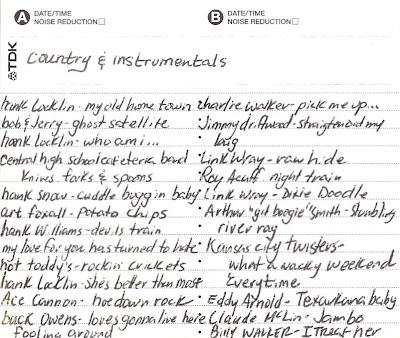 A DATE/TIME
NOISE REDUCTION
B DATE/TIME
NOISE REDUCTION
TDK
Country & instrumentals
hank Locklin - my old home town
bob & Jerry - ghost satellite
hank Locklin - who am i...
central high school cafeteria band
knives, forks & spoons
hank snow - cuddle buggin baby
art foxall - potato chips
hank Williams - devils train
my love for you has turned to hate
hot toddy's - rockin' crickets
hank Locklin - She's better than most
Ace Cannon - hoedown rock
buck Owens - loves gonna live here
fooling around
charlie walker - pick me up...
Jimmy driftwood - straighten out my
bag
Link Wray - rawhide
Roy Acuff - night train
Link Wray - Dixie Doodle
Arthur "git boogie" Smith - Stumbling
river rag
Kansas city twisters -
what a wacky weekend
Everytime
Eddy Arnold - Texarkana baby
Claude McLin - Jambo
Billy WALKER - I TREAT her